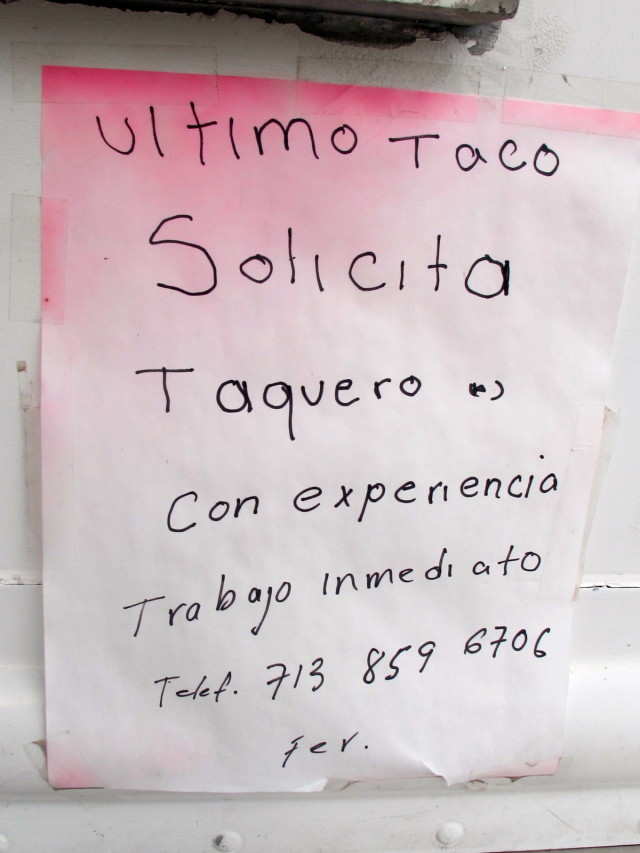 Ultimo Taco
Solicita
Taquero
Con experiencia
Trabajo inmediato
Telef. 713 859 6706
Fer.